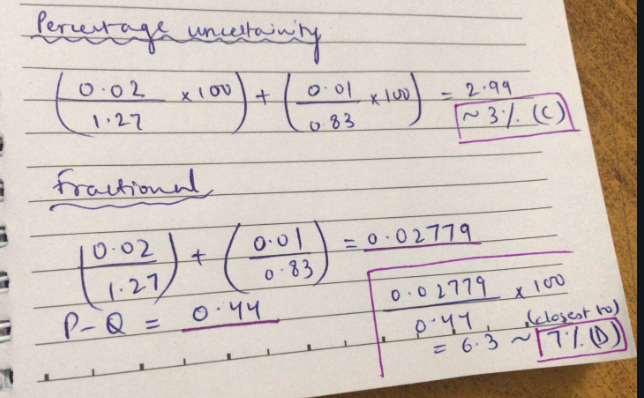 Percentage uncertainity
(0.02/1.27 ×100) + (0.01/0.83 ×100) = 2.99
~ 3% (C)
Fractional
(0.02/1.27) + (0.01/0.83) = 0.02779
P-Q = 0.44
0.02779/0.44 × 100
= 6.3 ~ (closest to) 7% (D)